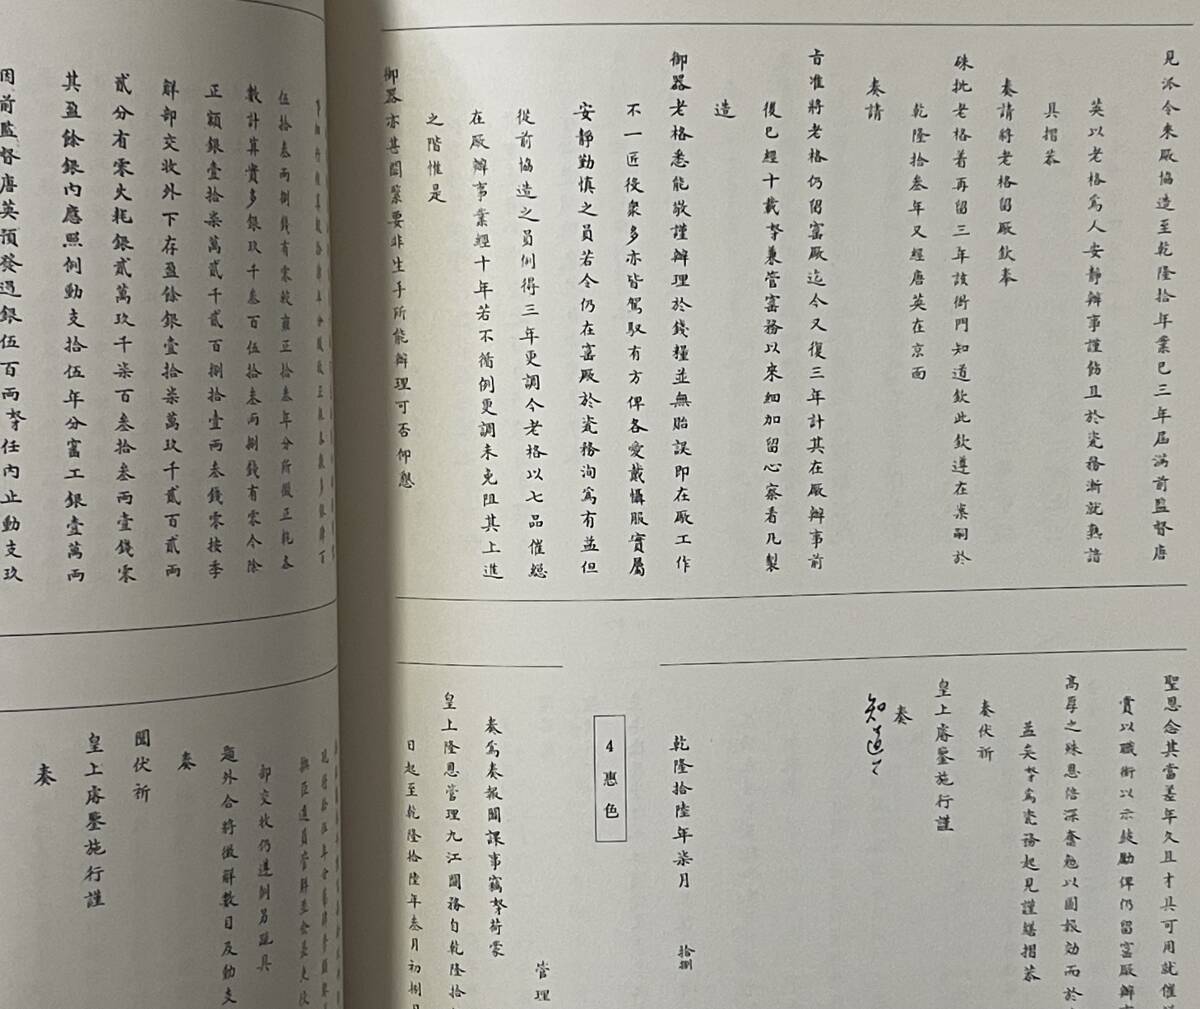 見派令來厰協造至乾隆拾年業已三年屆滿前監督唐
英以老格爲人安靜辦事謹飭且於瓷務漸就熟諳
具摺恭
奏請將老格留厰欽奉
硃批老格着再留三年該衙門知道欽此欽遵在案嗣於
乾隆拾叁年又經唐英在京面
奏請
旨准將老格仍留窰厰迄今又復三年計其在厰辦事前
後已經十載奴才兼管窰務以來細加留心察看凡製
造
御器老格悉能敬謹辦理於錢糧並無貽誤即在厰工作
不一匠役衆多亦皆駕馭有方俾各愛戴懾服實屬
安靜勤慎之員若令仍在窰厰於瓷務洵爲有益但
從前協造之員例得三年更調今老格以七品催總
在厰辦事業經十年若不循例更調未免阻其上進
之階惟是
御器亦甚關緊要非生手所能辦理可否仰懇
聖恩念其當差年久且才具可用就催
賞以職銜以示鼓勵俾仍留窰厰辦
高厚之殊恩倍深奮勉以圖報効而於
益矣奴才爲瓷務起見謹繕摺恭
奏伏祈
皇上睿鑒施行謹
奏
知道了
乾隆拾陸年柒月 拾捌
4 惠色
管理
奏爲奏報關課事竊奴才荷蒙
皇上隆恩管理九江關務自乾隆拾
日起至乾隆拾陸年叁月初捌
伍拾叁兩捌錢有零較雍正拾叁年分所徵正耗各
數計算實多銀玖千叁百伍拾叁兩捌錢有零今除
正額銀壹拾柒萬貳千貳百捌拾壹兩叁錢零按季
解部交收外下存盈餘銀壹拾柒萬玖千貳百貳兩
貳分有零火耗銀貳萬玖千柒百叁拾叁兩壹錢零
其盈餘銀內應照例動支拾伍年分窰工銀壹萬兩
因前監督唐英預發過銀伍百兩奴才任內止動支玖
部交收仍遵例另疏具
題外合將徵解數目及動支
奏
聞伏祈
皇上睿鑒施行謹
奏